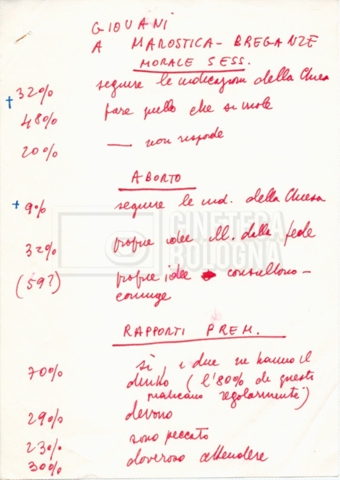 GIOVANI
A MAROSTICA - BREGANZE
MORALE SESS.
+ 32% seguire le indicazioni della Chiesa
48% fare quello che si vuole
20% — non risponde
ABORTO
+ 9% seguire le ind. della Chiesa
32% proprie idee ill. dalla fede
(59?) proprie idee consultorio -
coniuge
RAPPORTI PREM.
70% sì, i due ne hanno il
diritto (l'80% di questi
praticano "regolarmente")
29% devono
23% sono peccato
30% doveroso attendere
CINETECA
BOLOGNA